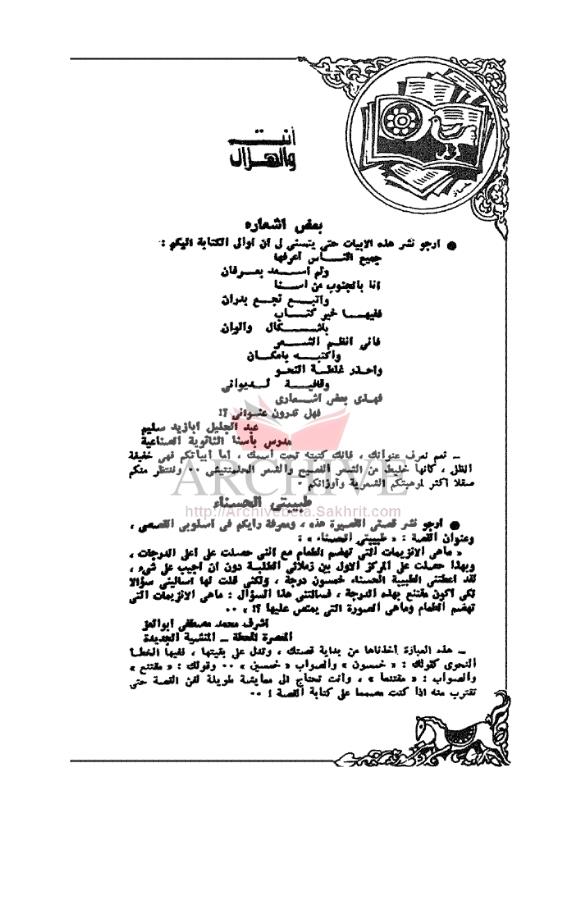 أنت
والهلال
بعض اشعاره
● ارجو نشر هذه الابيات حتى يتسنى لى ان اوالى الكتابة اليكم :
جميع النـاس أعرفها
ولم أسـعد بعـرفان
أنا بالجنوب من اسـنا
واتبـع نجـع بدران
ففيهـا خير كتـاب
باشـكال والوان
فانى انظم الشـعر
واكتبـه بامكـان
واحذر غلطـة النحـو
وقافيـة لـديوانى
فهـذى بعض اشـعارى
فهل تدرون عنـوانى ؟!
عبد الجليل ابازيد سليم
مدرس باسنا الثانوية الصناعية
ــ نعم نعرف عنوانك ، فانك كتبته تحت اسمك ، أما أبياتك فهى خفيفة
الظل ، كأنها خليط من الشعر الفصيح والشعر الحلمنتيشى ٠٠ وننتظر منكم
صقلا أكثر لموهبتكم الشعرية وأوزانكم
ARCHIVE
طبيبتى الحسناء
http://Archivebeta.Sakhrit.com
● ارجو نشر قصتى القصيرة هذه ، ومعرفة رايكم فى اسلوبى القصصى ،
وعنوان القصة : « طبيبتى الحسناء » :
« ماهى الانزيمات التى تهضم الطعام مع اننى حصلت على اعلى الدرجات ،
وبهذا حصلت على المركز الاول بين زملائى الطلبة دون ان اجيب على شىء ،
لقد اعطتنى الطبيبة الحسناء خمسون درجة ، ولكنى قلت لها اسالينى سؤالا
لكى اكون مقتنع بهذه الدرجة ، فسالتنى هذا السؤال : ماهى الانزيمات التى
تهضم الطعام وماهى الصورة التى يمتص عليها ؟! » ٠٠
اشرف محمد مصطفى ابوالعز
المعصرة المحطة ــ المنشية الجديدة
ــ هذه العبارة أخذناها من بداية قصتك ، وتدل على بقيتها ، ففيها الخطأ
النحوى كقولك : « خمسون » والصواب « خمسين » ٠٠ وقولك : « مقتنع »
والصواب : « مقتنعا » ، وأنت تحتاج الى معايشة طويلة لفن القصة حتى
تقترب منه اذا كنت مصمما على كتابة القصة ! ٠٠